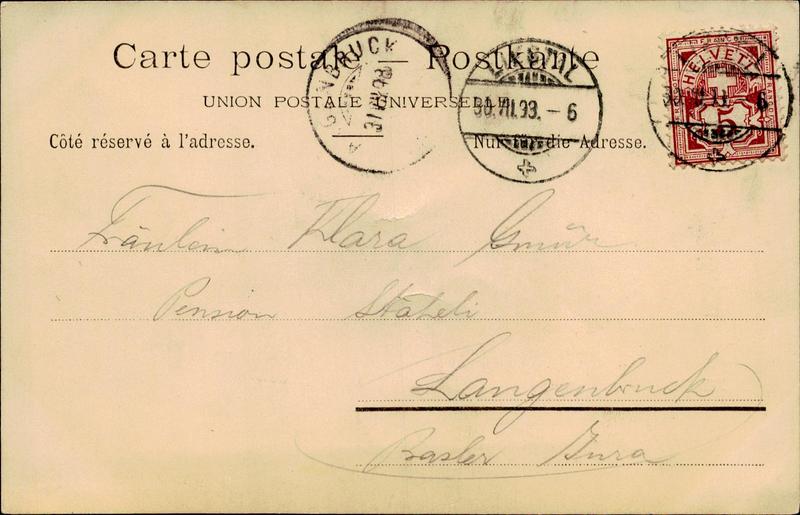 Carte postale — Postkarte
UNION POSTALE UNIVERSELLE
Côté réservé à l'adresse.
Nur für die Adresse.
30.VII.93.-6
HELVETIA
Fräulein Klara Gmür
Pension Stäheli
Langenbruck
Basler Jura